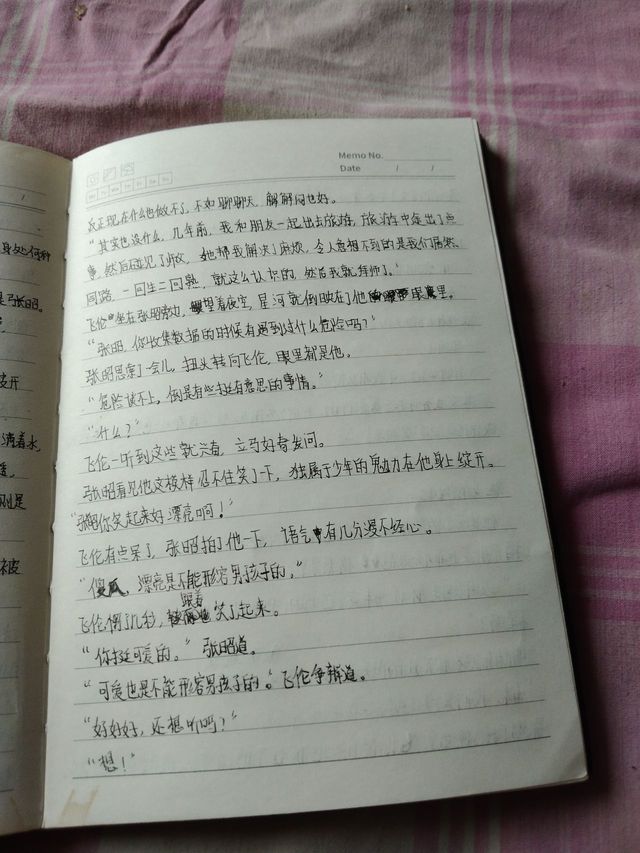 Memo No.
Date / /
反正现在什么也做不了，不如聊聊天，解解闷也好。
“其实也没什么，几年前，我和朋友一起出去旅游，旅游中途出了点
事，然后碰见了师父，她帮我解决了麻烦，令人意想不到的是我们居然
同路，一回生二回熟，就这么认识的，然后我就拜师了。”
飞伦坐在张昭旁边，望着夜空，星河就倒映在了他眼里。
“张昭，你收集数据的时候有遇到过什么危险吗？”
张昭思索了一会儿，扭头转向飞伦，眼里都是他。
“危险谈不上，倒是有些挺有意思的事情。”
“什么？”
飞伦一听到这些就兴奋，立马好奇发问。
张昭看见他这模样忍不住笑了一下，独属于少年的魅力在他身上绽开。
“张昭你笑起来好漂亮啊！”
飞伦有点呆了，张昭拍了他一下，语气中有几分漫不经心。
“傻瓜，漂亮是不能形容男孩子的，”
飞伦愣了几秒，跟着笑了起来。
“你挺可爱的。”张昭道。
“可爱也是不能形容男孩子的。”飞伦争辩道。
“好好好，还想听吗？”
“想！”
身处何种
是张昭。
皮开
滴着水
则是
被